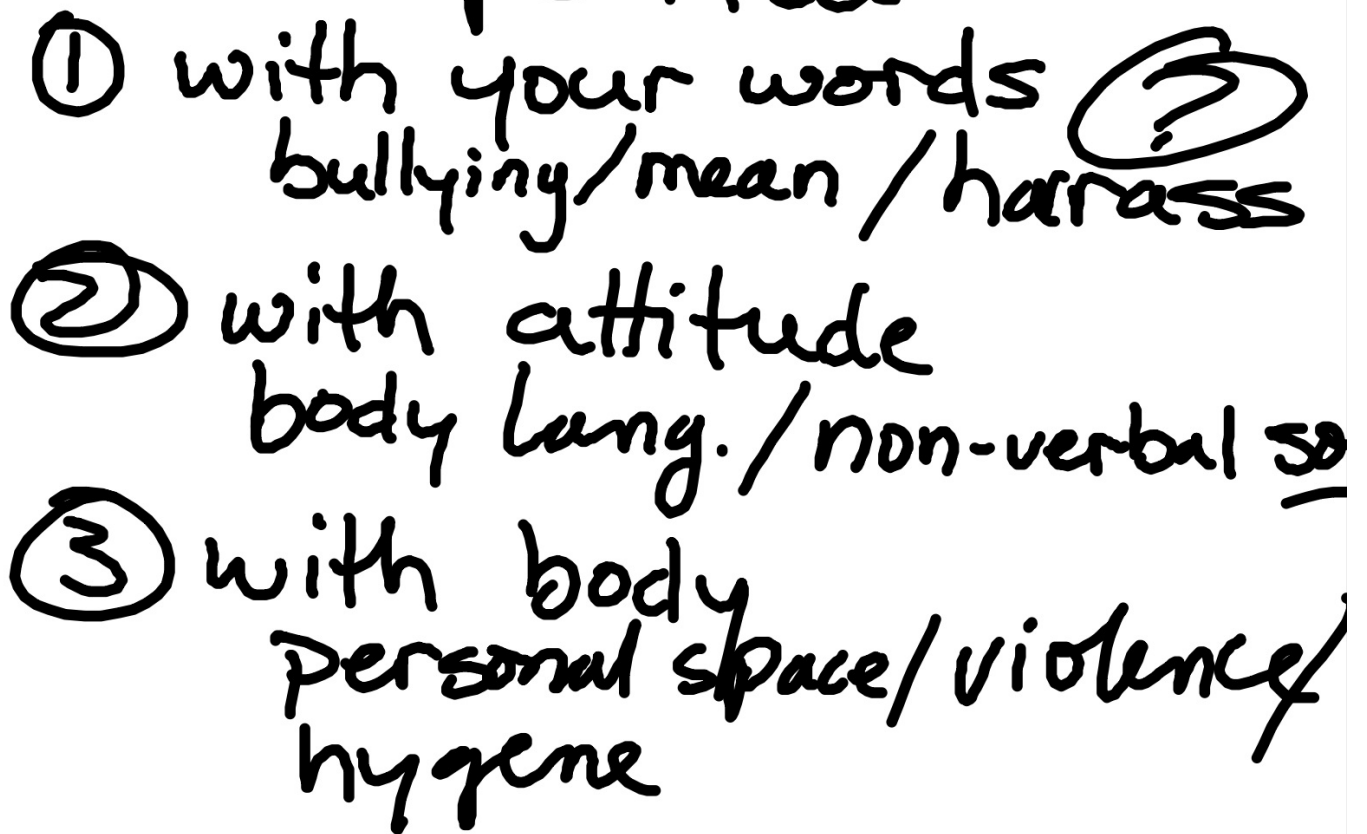 ① with your words ?
bullying/mean/harrass
② with attitude
body lang./non-verbal so
③ with body
personal space/violence/
hygene